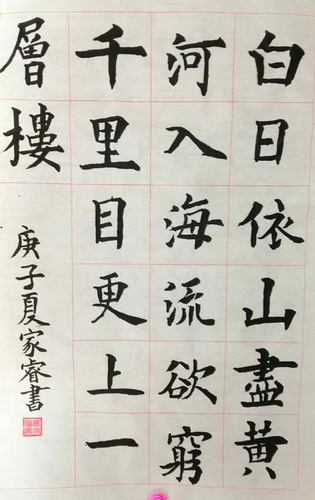 白日依山盡黃
河入海流欲窮
千里目更上一
層樓
庚子夏家睿書